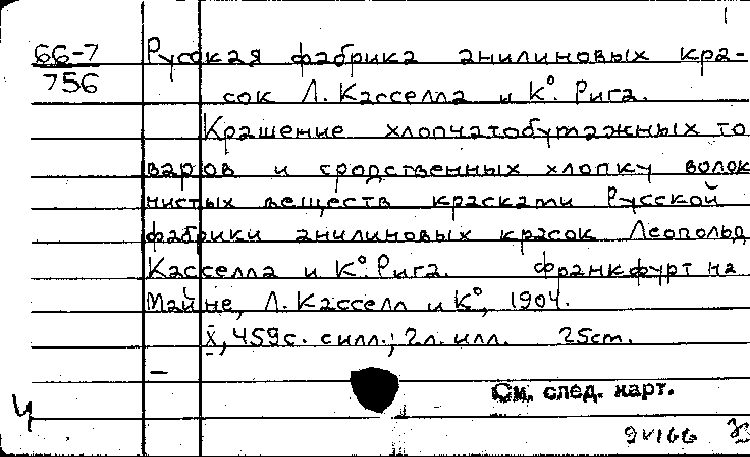 66-7
756
Русская фабрика анилиновых кра-
сок Л. Касселла и К°. Рига.
Крашение хлопчатобумажных то
варов и сродственных хлопку волок
нистых веществ красками Русской
фабрики анилиновых красок Леопольд
Касселла и К°. Рига. Франкфурт на
Майне, Л. Касселл и К°, 1904.
X, 459с. с илл.; 2л. илл. 25cm.
—
См. след. карт.
Ч
9 VI 66